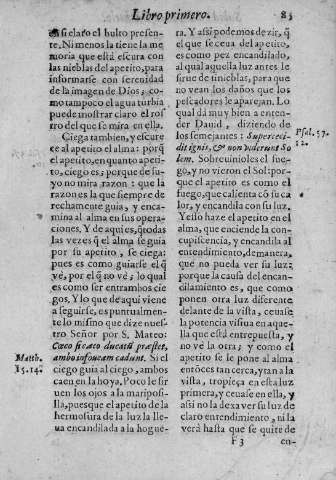 Libro primero. 83
si claro el bulto presen-
te, Ni menos la tiene la me
moria que està escura con
las nieblas del apetito, para
informarse con serenidad
de la imagen de Dios, co-
mo tampoco el agua turbia
puede mostrar claro el ros
tro del que se mira en ella.
Ciega tambien, y escure
ce al apetito el alma: porq̃
el apetito, en quanto apeti-
to, ciego es; porque de su-
yo no mira razon: que la
razon es la que siempre de
rechamente guia, y enca
mina al alma en sus opera-
ciones. Y de aqui es, q̃ todas
las vezes q̃ el alma se guia
por su apetito, se ciega:
pues es como guiarse el q̃
vè, por el q̃ no vè, lo qual
es como ser entrambos cie
gos. Y lo que de aqui viene
a seguirse, es puntualmen-
te lo mismo que dize nues-
tro Señor por S. Mateo:
Cæco si cæco ducatũ præstet,
ambo in foueam cadunt. Si el
ciego guia al ciego, ambos
caen en la hoya. Poco le sir
uen los ojos a la mariposi-
lla, puesque el apetito de la
hermosura de la luz la lle-
ua encandilada a la hogue-
Matth.
15.14.
ra. Y assi podemos dezir, q̃
el que se ceua del apetito,
es como pez encandilado,
al qual aquella luz antes le
sirue de tinieblas, para que
no vean los daños que los
pescadores le aparejan. Lo
qual dà muy bien a enten-
der Dauid, diziendo de
los semejantes: Supercecí-
dit ignis, & non viderunt So
lem. Sobreuinoles el fue-
go, y no vieron el Sol: por-
que el apetito es como el
fuego, que calienta cõ su ca
lor, y encandila con su luz.
Y esso haze el apetito en el
alma, que enciende la con-
cupiscencia, y encandila al
entendimiento, de manera,
que no pueda ver su luz:
porque la causa del encan-
dilamiento es, que como
ponen otra luz diferente
delante de la vista, ceuase
la potencia visiua en aque-
lla que està entrepuesta, y
no vè la otra; y como el
apetito se le pone al alma
entõces tan cerca, y tan a la
vista, tropieça en esta luz
primera, y ceuase en ella, y
assi no la dexa ver su luz de
claro entendimiento, ni la
verà hasta que se quite de
Psal. 57.
F 3 en-